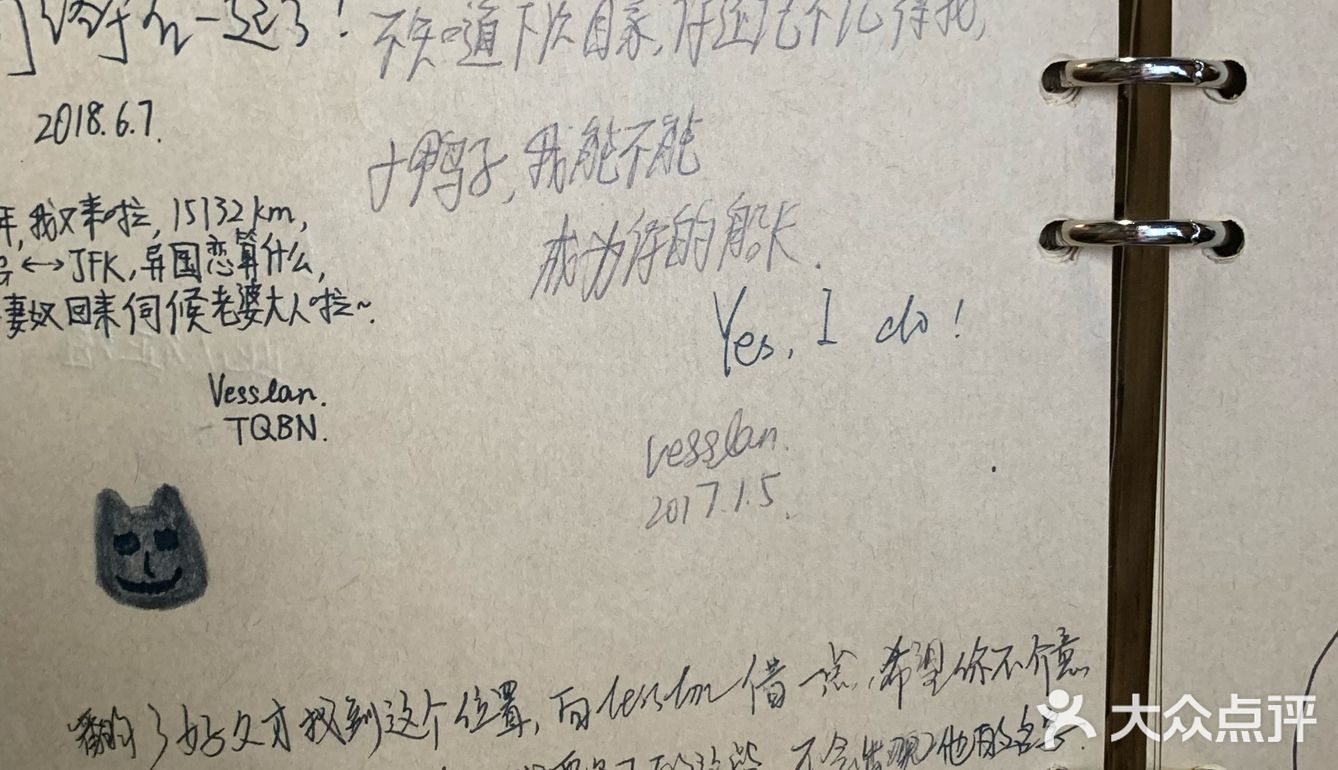 们终于在一起了!
2018.6.7.
年,我又来啦,15132km,
↔JFK,异国恋算什么,
妻奴回来伺候老婆大人啦~.
Vesslan.
TQBN.
不知道下次回家,你还记不记得我,
小鸭子,我能不能
成为你的船长.
Yes, I do!
vesslan.
2017.1.5.
翻了好久才找到这个位置,向Vesslan借一点,希望你不介意
不会出现他的名字.
大众点评